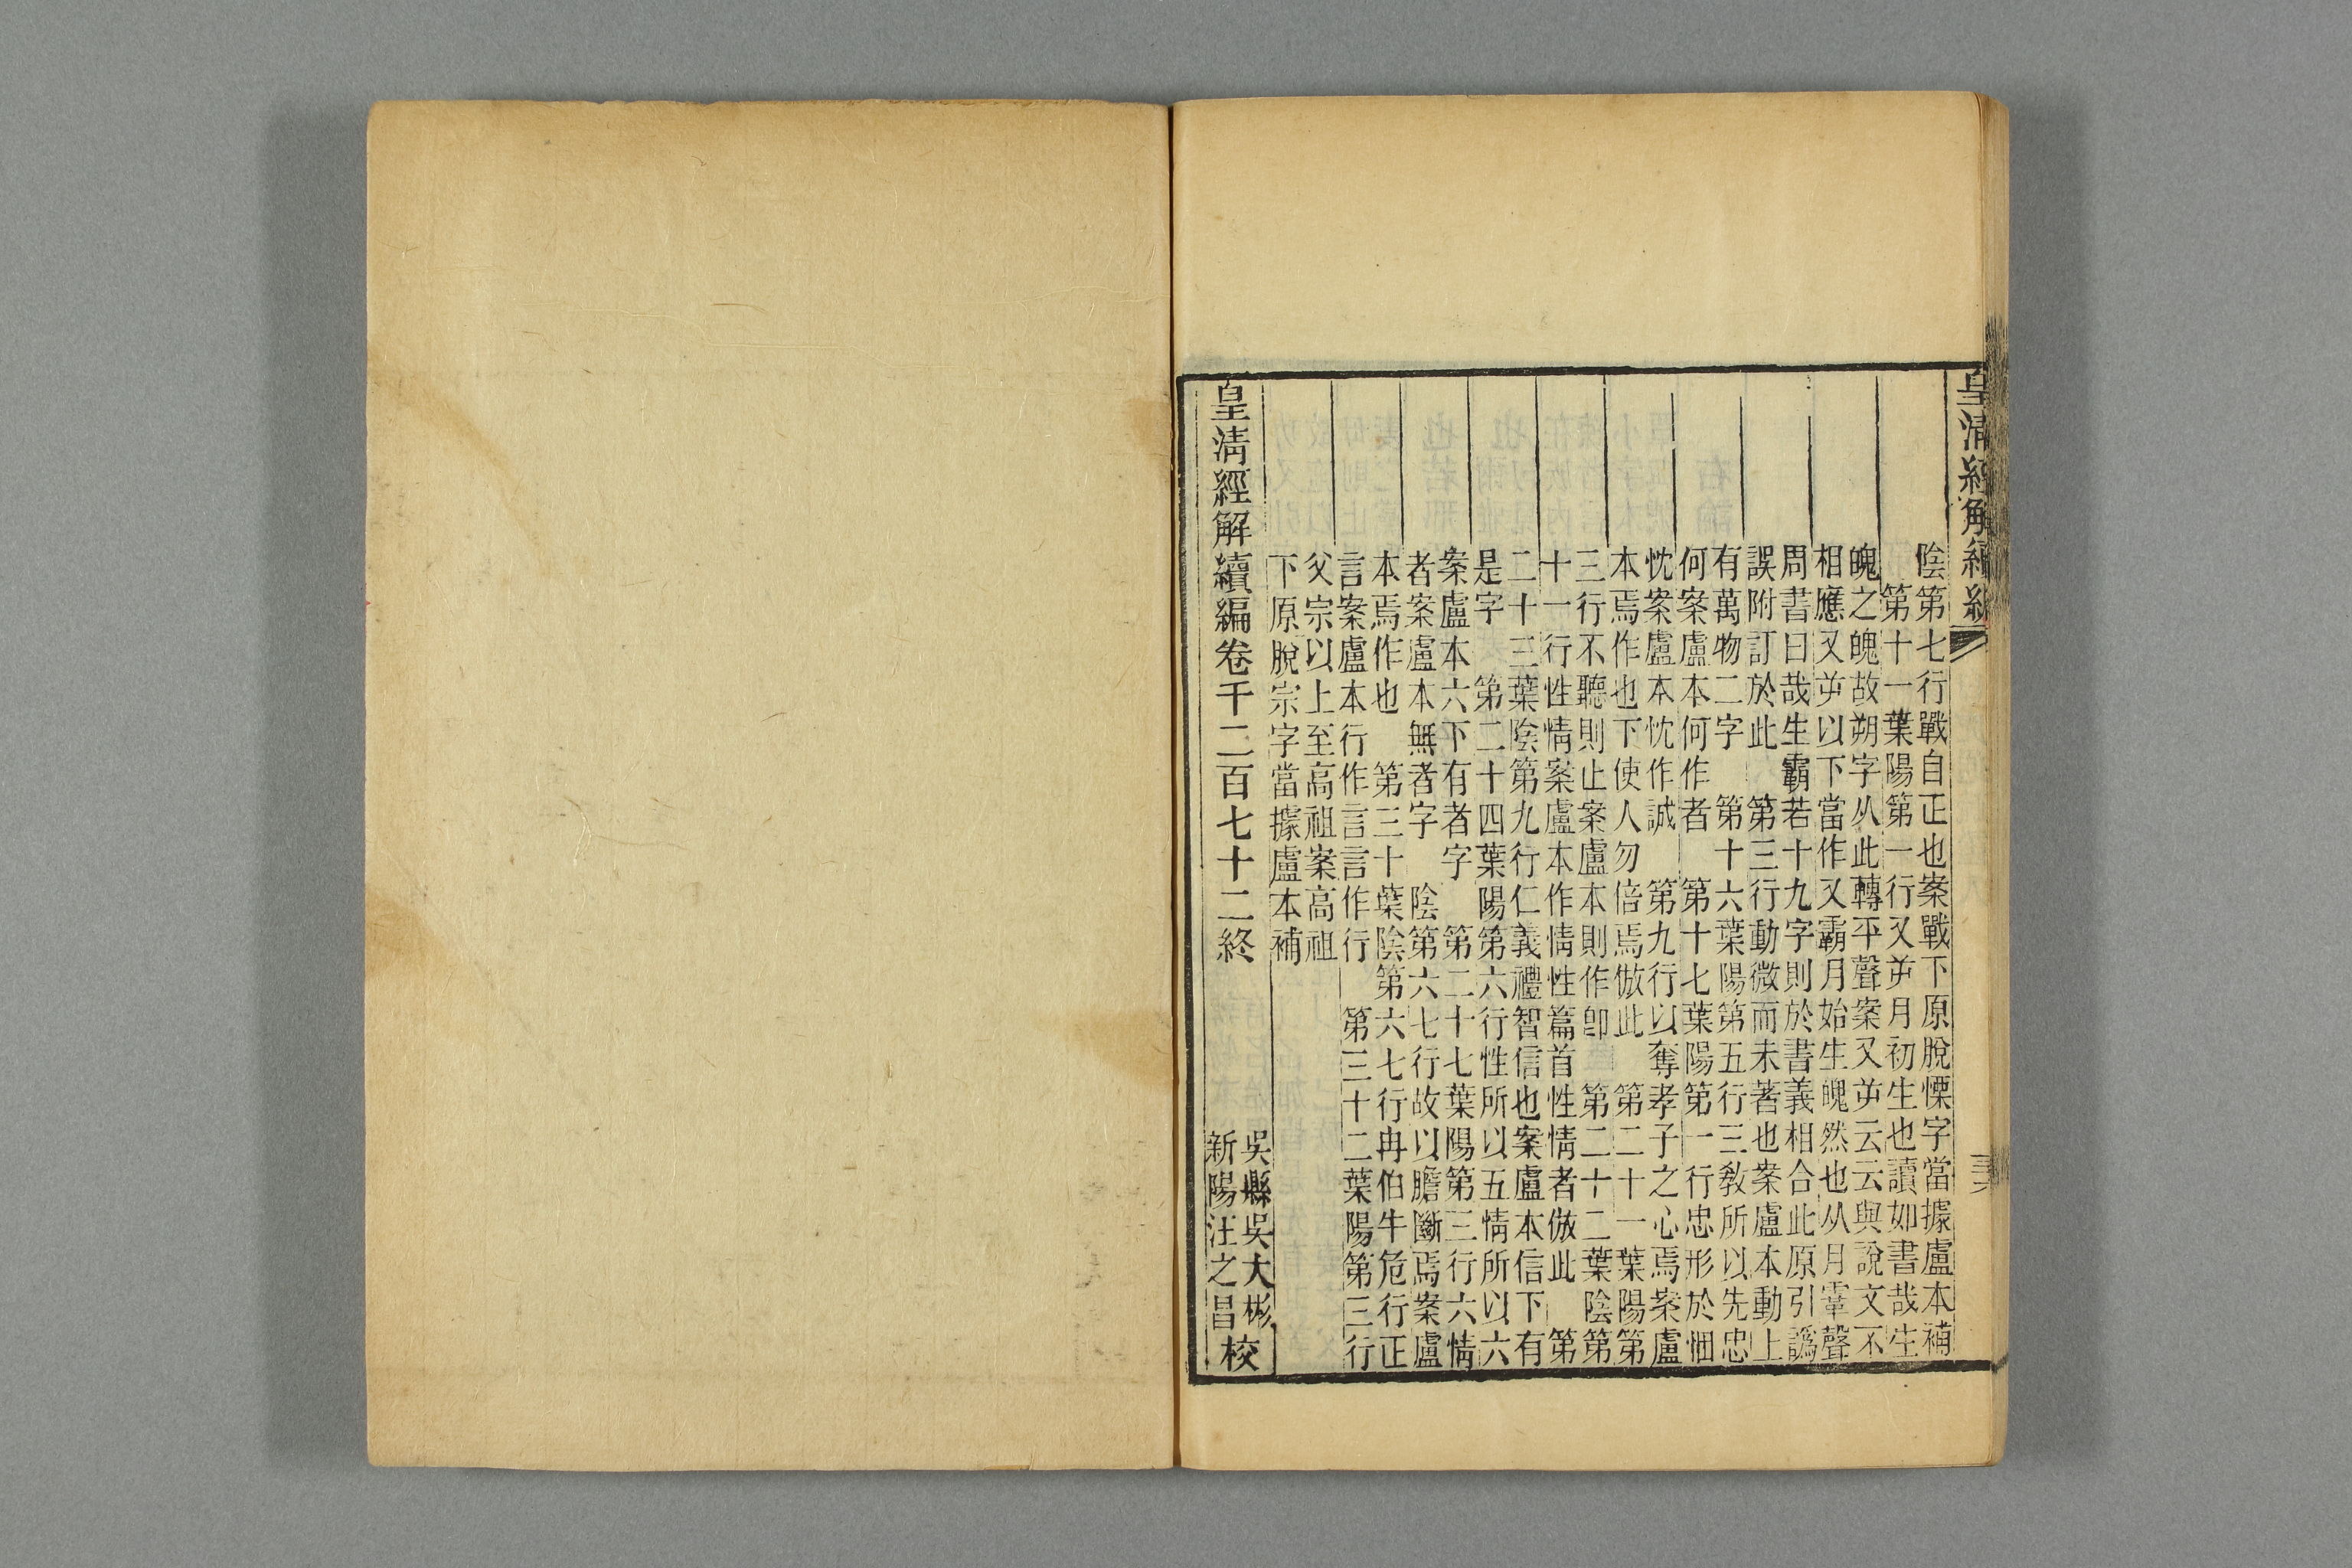 皇清經解續編
陰第七行戰自正也案戰下原脫慄字當據盧本補
第十一葉陽第一行又屰月初生也讀如書哉生
魄之魄故朔字从此轉平聲案又屰云云與說文不
相應又屰以下當作又霸月始生魄然也从月䨣聲
周書曰哉生霸若十九字則於書義相合此原引譌
誤附訂於此 第三行動微而未著也案盧本動上
有萬物二字 第十六葉陽第五行三敎所以先忠
何案盧本何作者 第十七葉陽第一行忠形於悃
忱案盧本忱作誠 第九行以奪孝子之心焉案盧
本焉作也下使人勿倍焉倣此 第二十一葉陽第
三行不聽則止案盧本則作卽 第二十二葉陰第
十一行性情案盧本作情性篇首性情者倣此 第
二十三葉陰第九行仁義禮智信也案盧本信下有
是字 第二十四葉陽第六行性所以五情所以六
案盧本六下有者字 第二十七葉陽第三行六情
者案盧本無者字 陰第六七行故以膽斷焉案盧
本焉作也 第三十葉陰第六七行冉伯牛危行正
言案盧本行作言言作行 第三十二葉陽第三行
父宗以上至高祖案高祖
下原脫宗字當據盧本補
皇淸經解續編卷千二百七十二終
吳縣吳大彬
新陽汪之昌
校